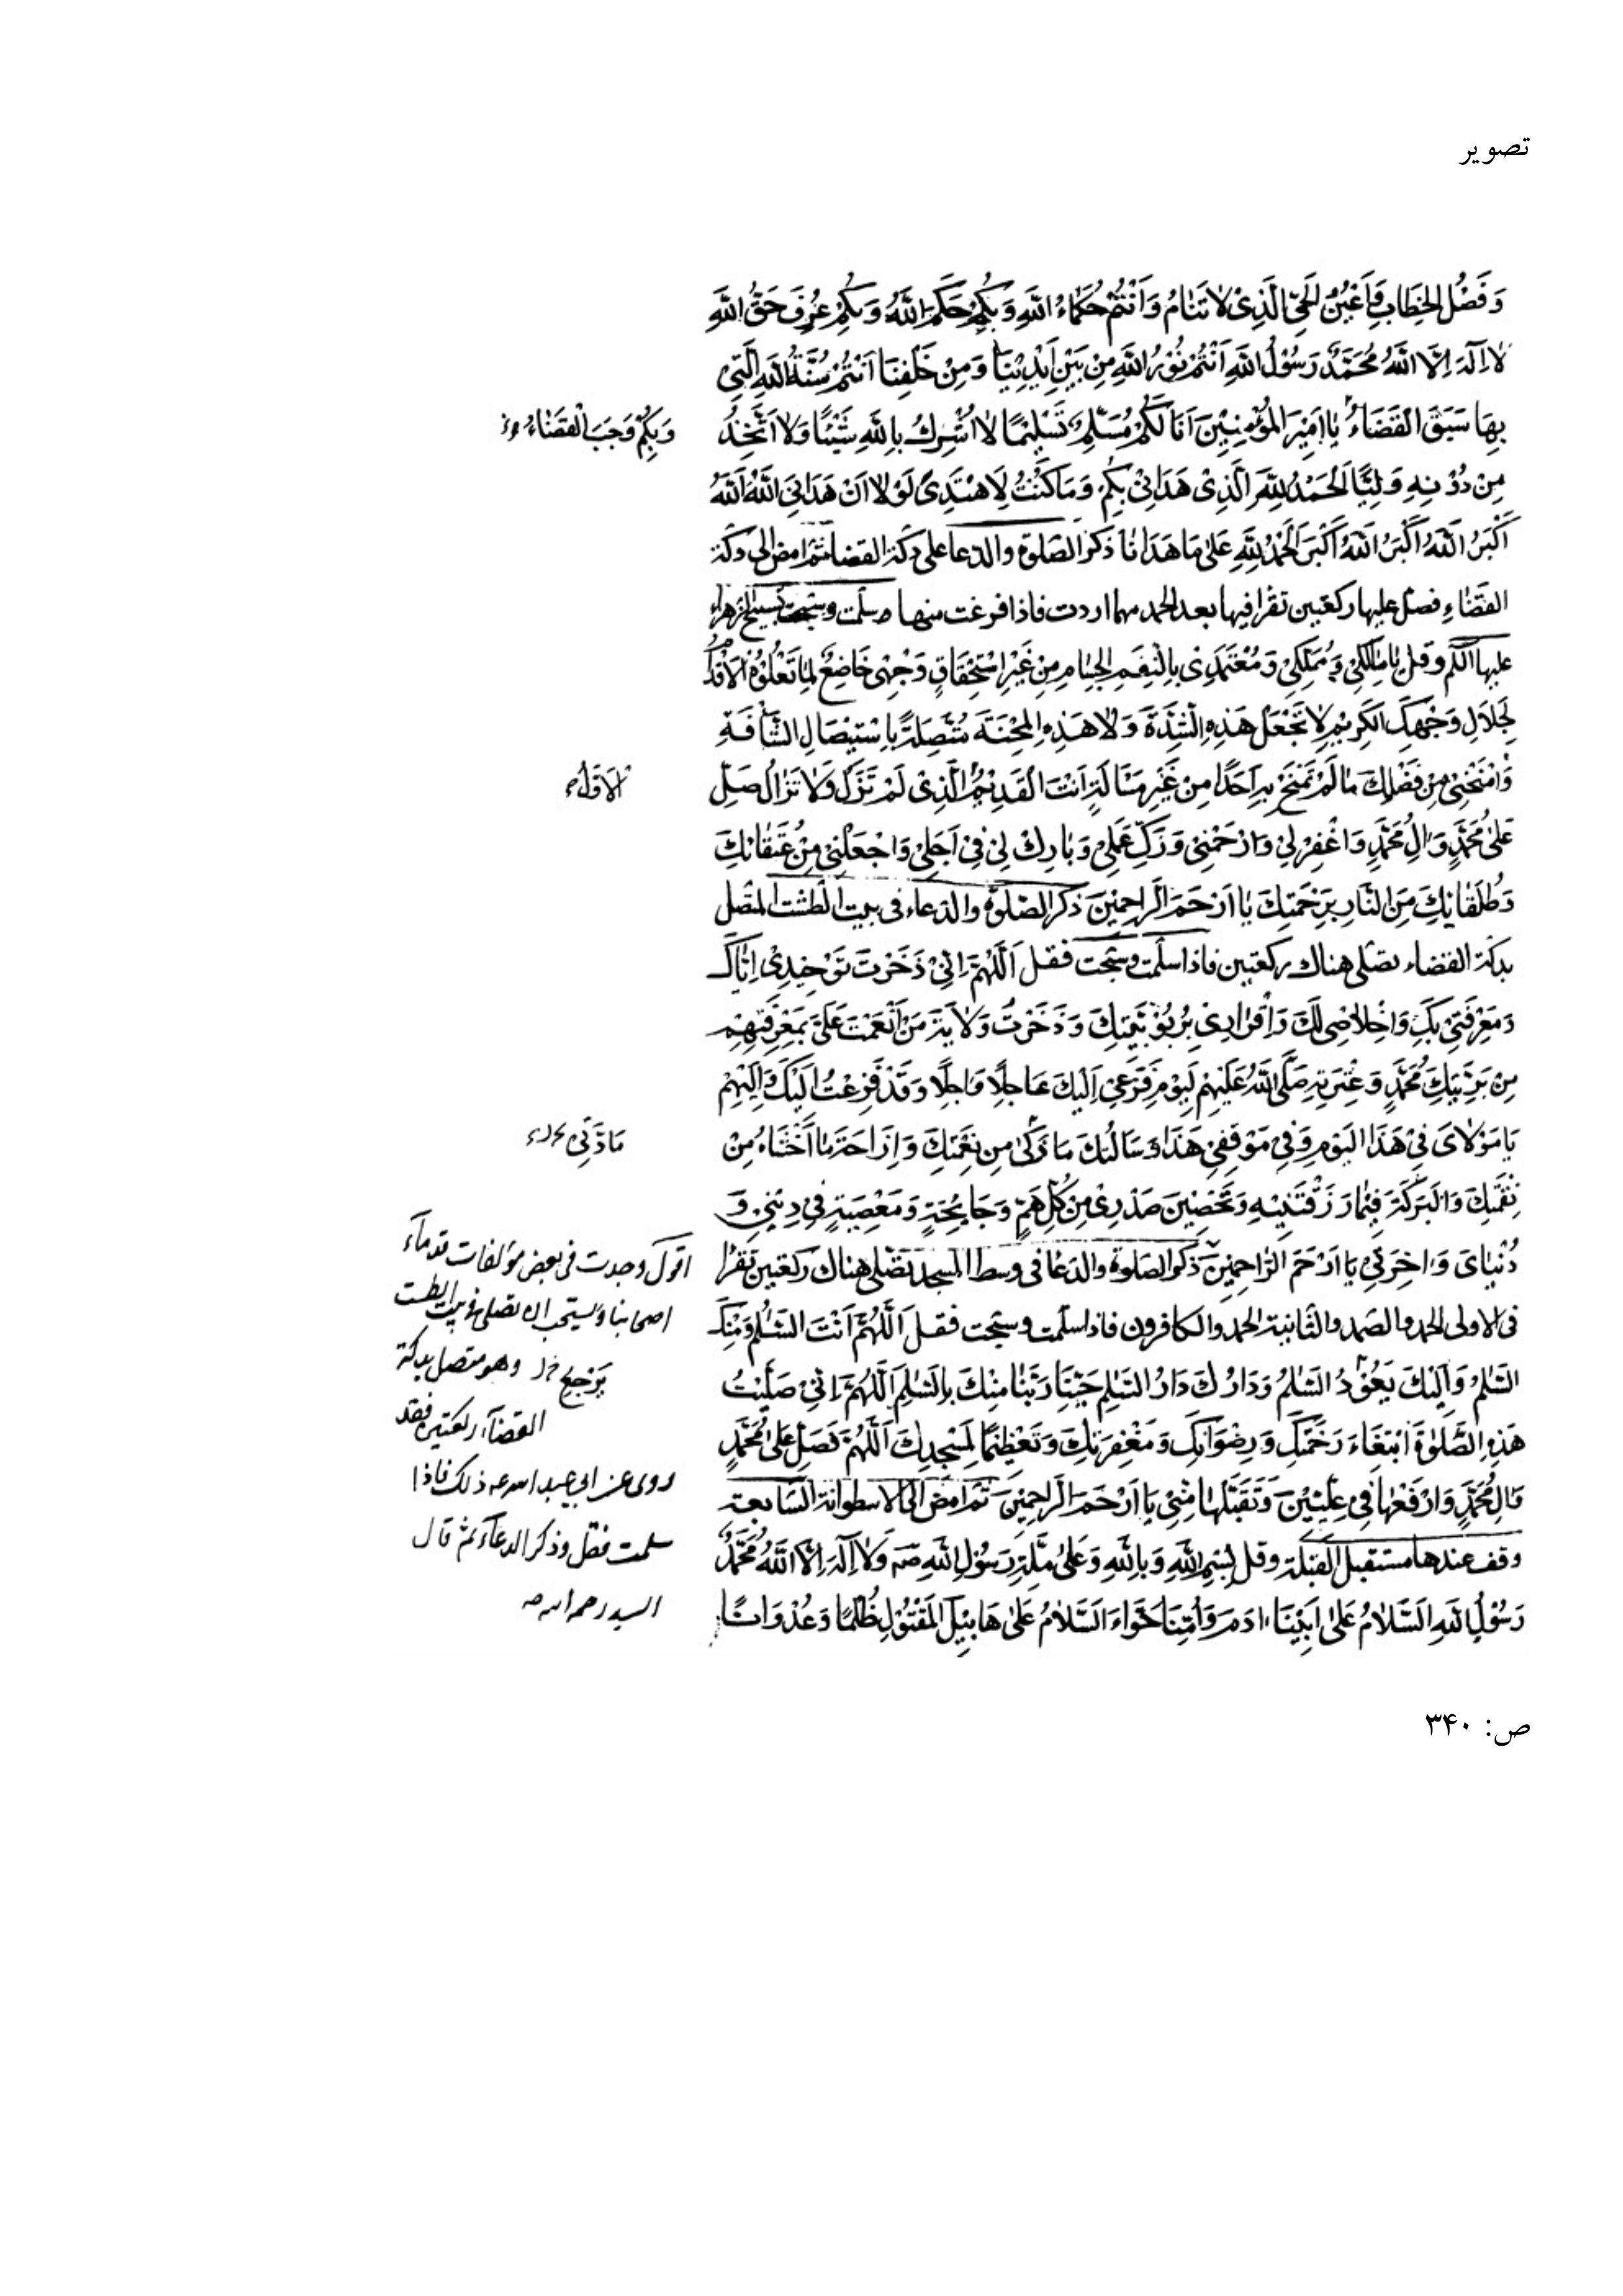 تصویر
وَفَصْلُ الْخِطَابِ وَاَعْيُنُ الْحَىِّ الَّذِىْ لَا تَنَامُ وَاَنْتُمْ حُكَمَاءُ اللهِ وَبِكُمْ حَكَمَ اللهُ وَبِكُمْ عُرِفَ حَقُّ اللهِ
لَا اِلٰهَ اِلَّا اللهُ مُحَمَّدٌ رَسُوْلُ اللهِ اَنْتُمْ نُوْرُ اللهِ مِنْ بَيْنِ اَيْدِيْنَا وَمِنْ خَلْفِنَا اَنْتُمْ سُنَّةُ اللهِ الَّتِىْ
بِهَا سَبَقَ الْقَضَاءُ يَا اَمِيْرَ الْمُؤْمِنِيْنَ اَنَا لَكُمْ مُسَلِّمٌ تَسْلِيْمًا لَا اُشْرِكُ بِاللهِ شَيْئًا وَلَا اَتَّخِذُ
وَبِكُمْ وَجَبَ الْقَضَاءُ
مِنْ دُوْنِهِ وَلِيًّا اَلْحَمْدُ لِلّٰهِ الَّذِىْ هَدَانِىْ بِكُمْ وَمَا كُنْتُ لِاَهْتَدِىَ لَوْلَا اَنْ هَدَانِىَ اللهُ اَللهُ
اَكْبَرُ اَللهُ اَكْبَرُ اَللهُ اَكْبَرُ اَلْحَمْدُ لِلّٰهِ عَلٰى مَا هَدَانَا ذكر الصلوة والدعا على دكة القضا ثم امض الى دكة
القضاءِ فصل عليها ركعتين تقرا فيها بعد الحمد مهما اردت فاذا فرغت منها وسلمت وسبحت تسبيح الزهراء
عليها السلم وقل يَا مَالِكِىْ وَمُمَلِّكِىْ وَمُعْتَمَدِىْ بِالنِّعَمِ الْجِسَامِ مِنْ غَيْرِ اسْتِحْقَاقٍ وَجْهِىْ خَاضِعٌ لِمَا تَعْلُوْهُ الْاَقْدَامُ
لِجَلَالِ وَجْهِكَ الْكَرِيْمِ لَا تَجْعَلْ هَذِهِ الشِّدَّةَ وَلَا هَذِهِ الْمِحْنَةَ مُتَّصِلَةً بِاسْتِيْصَالِ الشَّأْفَةِ
وَامْنَحْنِىْ مِنْ فَضْلِكَ مَا لَمْ تَمْنَحْ بِهِ اَحَدًا مِنْ غَيْرِ مَسْاَلَةٍ اَنْتَ الْقَدِيْمُ الَّذِىْ لَمْ تَزَلْ وَلَا تَزَالُ صَلِّ
عَلٰى مُحَمَّدٍ وَاٰلِ مُحَمَّدٍ وَاغْفِرْ لِىْ وَارْحَمْنِىْ وَزَكِّ عَمَلِىْ وَبَارِكْ لِىْ فِىْ اَجَلِىْ وَاجْعَلْنِىْ مِنْ عُتَقَائِكَ
وَطُلَقَائِكَ مِنَ النَّارِ بِرَحْمَتِكَ يَا اَرْحَمَ الرَّاحِمِيْنَ ذكر الصلوة والدعاء فى بيت الطشت المتصل
بدكة القضاء تصلى هناك ركعتين فاذا سلمت وسبحت فقل اَللّٰهُمَّ اِنِّىْ ذَخَرْتُ تَوْحِيْدِىْ اِيَّاكَ
وَمَعْرِفَتِىْ بِكَ وَاِخْلَاصِىْ لَكَ وَاِقْرَارِىْ بِرُبُوْبِيَّتِكَ وَذَخَرْتُ وَلَايَةَ مَنْ اَنْعَمْتَ عَلَىَّ بِمَعْرِفَتِهِمْ
مِنْ بَرِيَّتِكَ مُحَمَّدٍ وَعِتْرَتِهِ صَلَّى اللهُ عَلَيْهِمْ لِيَوْمِ فَزَعِىْ اِلَيْكَ عَاجِلًا وَاٰجِلًا وَقَدْ فَزِعْتُ اِلَيْكَ وَاِلَيْهِمْ
يَا مَوْلَاىَ فِىْ هَذَا الْيَوْمِ وَفِىْ مَوْقِفِىْ هَذَا وَسَاَلْتُكَ مَا زَكٰى مِنْ نِعْمَتِكَ وَاِزَاحَةَ مَا اَخْشَاهُ مِنْ
نِقْمَتِكَ وَالْبَرَكَةَ فِيْمَا رَزَقْتَنِيْهِ وَتَحْصِيْنَ صَدْرِىْ مِنْ كُلِّ هَمٍّ وَجَائِحَةٍ وَمَعْصِيَةٍ فِىْ دِيْنِىْ وَ
دُنْيَاىَ وَاٰخِرَتِىْ يَا اَرْحَمَ الرَّاحِمِيْنَ ذكر الصلوة والدعا فى وسط المسجد تصلى هناك ركعتين تقرا
فى الاولى الحمد والصمد والثانية الحمد والكافرون فاذا سلمت وسبحت فقل اَللّٰهُمَّ اَنْتَ السَّلٰمُ وَمِنْكَ
السَّلٰمُ وَاِلَيْكَ يَعُوْدُ السَّلٰمُ وَدَارُكَ دَارُ السَّلٰمِ حَيِّنَا رَبَّنَا مِنْكَ بِالسَّلٰمِ اَللّٰهُمَّ اِنِّىْ صَلَّيْتُ
هَذِهِ الصَّلٰوةَ ابْتِغَاءَ رَحْمَتِكَ وَرِضْوَانِكَ وَمَغْفِرَتِكَ وَتَعْظِيْمًا لِمَسْجِدِكَ اَللّٰهُمَّ فَصَلِّ عَلٰى مُحَمَّدٍ
وَاٰلِ مُحَمَّدٍ وَارْفَعْهَا فِىْ عِلِّيِّيْنَ وَتَقَبَّلْهَا مِنِّىْ يَا اَرْحَمَ الرَّاحِمِيْنَ ثم امض الى الاسطوانة السابعة
وقف عندها مستقبل القبلة وقل بِسْمِ اللهِ وَبِاللهِ وَعَلٰى مِلَّةِ رَسُوْلِ اللهِ صه وَلَا اِلٰهَ اِلَّا اللهُ مُحَمَّدٌ
رَسُوْلُ اللهِ اَلسَّلَامُ عَلٰى اَبِيْنَا اٰدَمَ وَاُمِّنَا حَوَّاءَ اَلسَّلَامُ عَلٰى هَابِيْلَ الْمَقْتُوْلِ ظُلْمًا وَعُدْوَانًا
اقول وجدت فى بعض مؤلفات قدماء
اصحابنا ويستحب ان تصلى فى بيت الطست
وهو متصل بدكة
القضاء ركعتين فقد
روى عن ابى عبد الله ذلك فاذا
سلمت فقل وذكر الدعاء ثم قال
السيد رحمه الله
ص: ۳۴۰